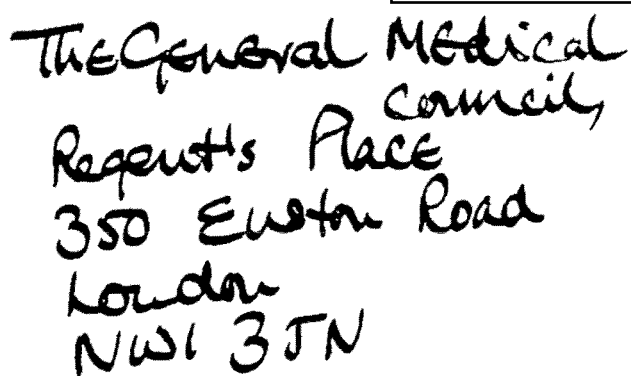 The General Medical
Council,
Regent's Place
350 Euston Road
London
NW1 3JN